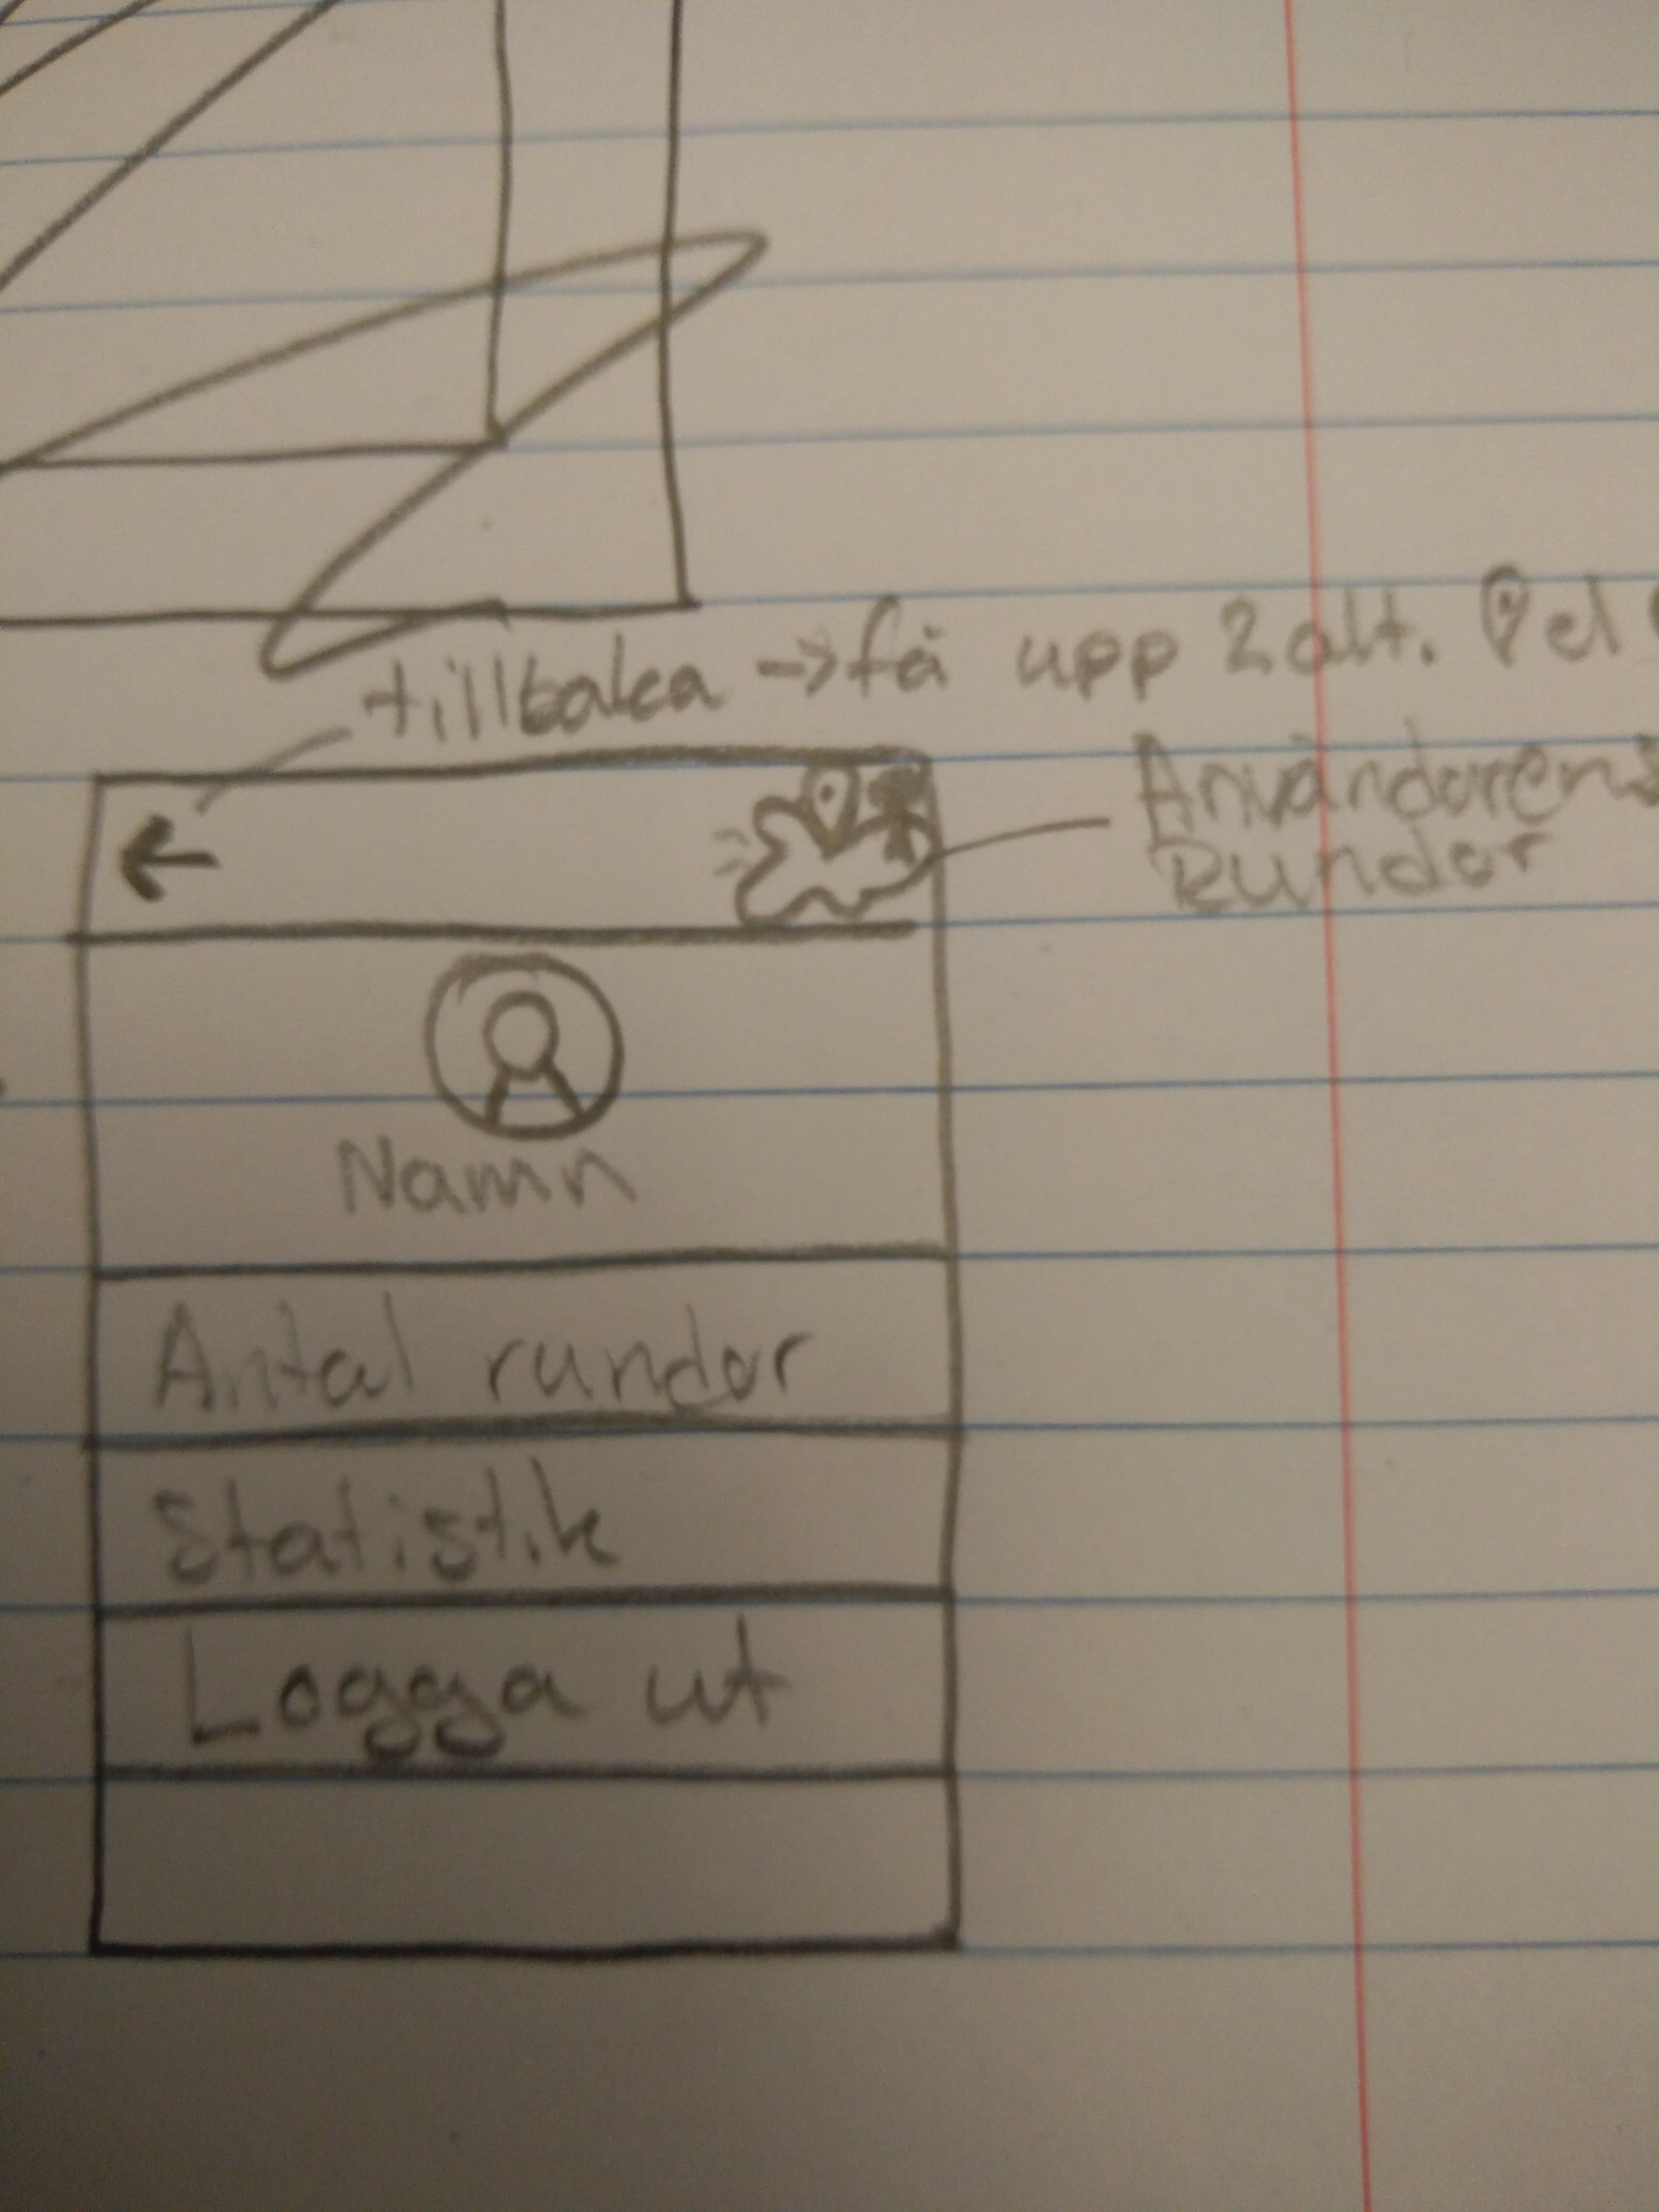 tillbaka -> få upp 2 alt. el
Användarens
Rundor
Namn
Antal rundor
Statistik
Logga ut